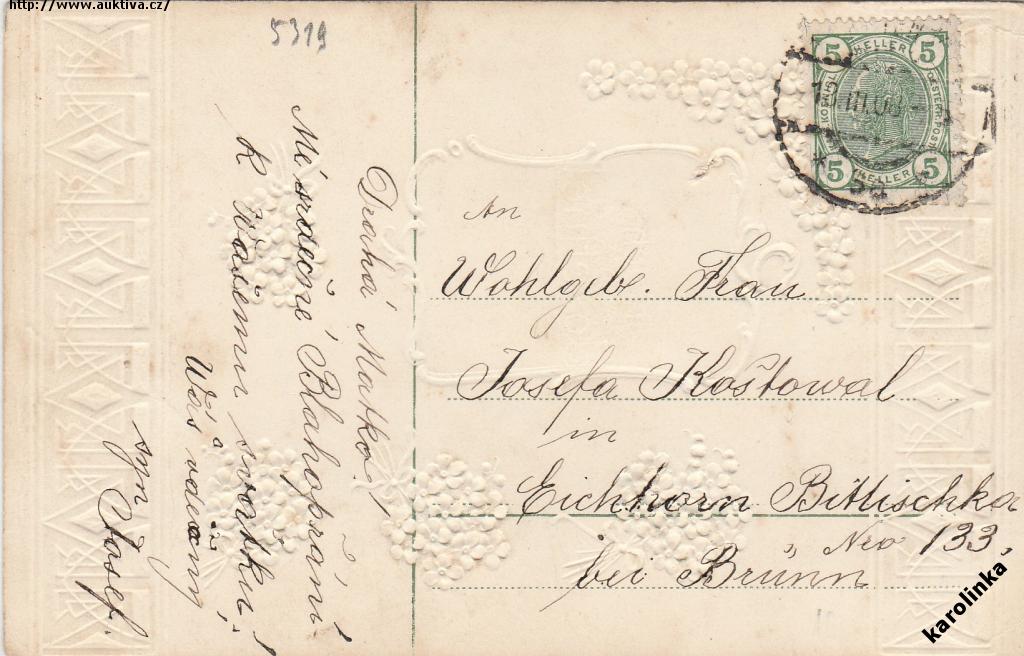 http://www.auktiva.cz/
5319
5 HELLER 5
5 HELLER 5
Drahá Matko!
Mé srdečné Blahopřání
k Wašemu svátku!
Wás vděčný
syn Josef.
An
Wohlgeb. Frau
Josefa Koštowal
in
Eichhorn Bittischka
Nro 133,
bei Brünn
karolinka